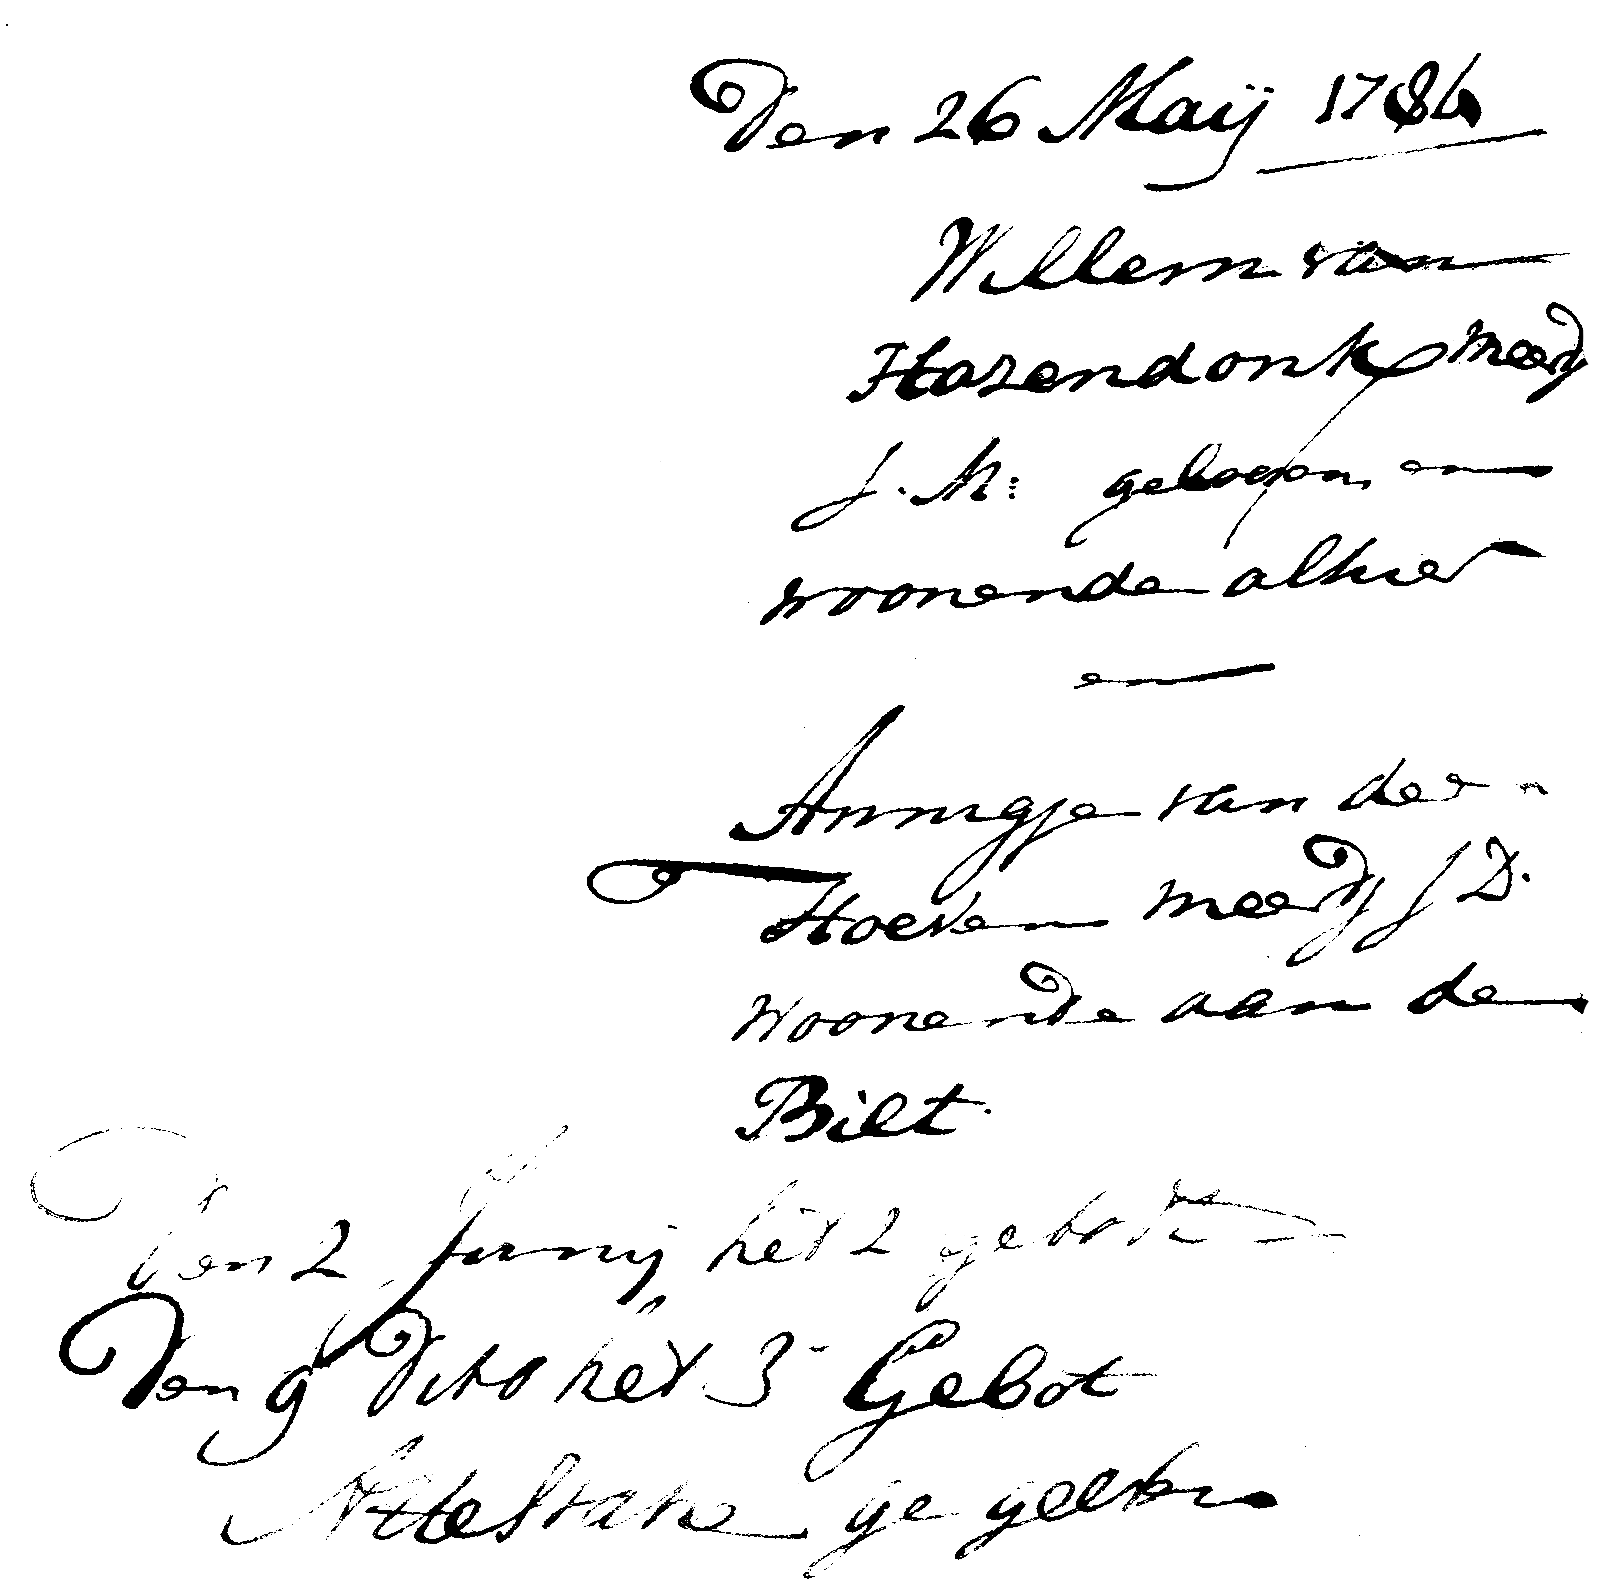 Den 26 Maÿ 1786
Willem van
Hazendonk meerdj
J. M: geboren en
woonende alhier
en
Annigje van der
Hoeven meerdj J D.
Woonende aan de
Bilt.
Den 2 Junij het 2 gebodt
Den 9 Dito het 3 Gebot
Attestatie ge geeven